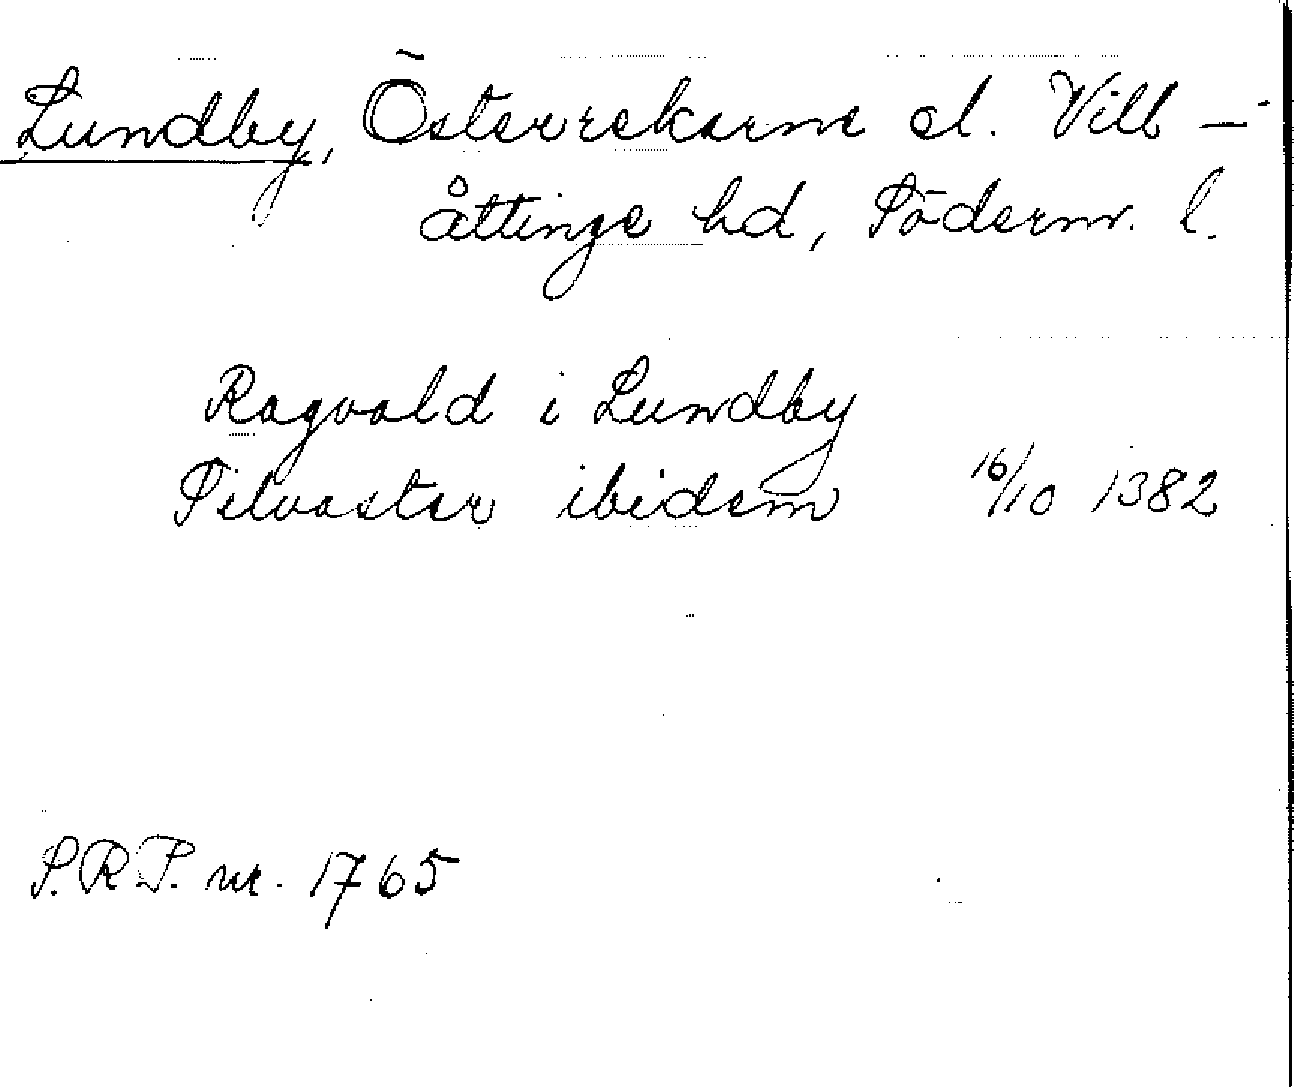 Lundby, Österrekarne el. Vill-
åttinge hd, Söderm. l.
Ragvald i Lundby
Silvaster ibidem 16/10 1382
S.R.P. nr. 1765